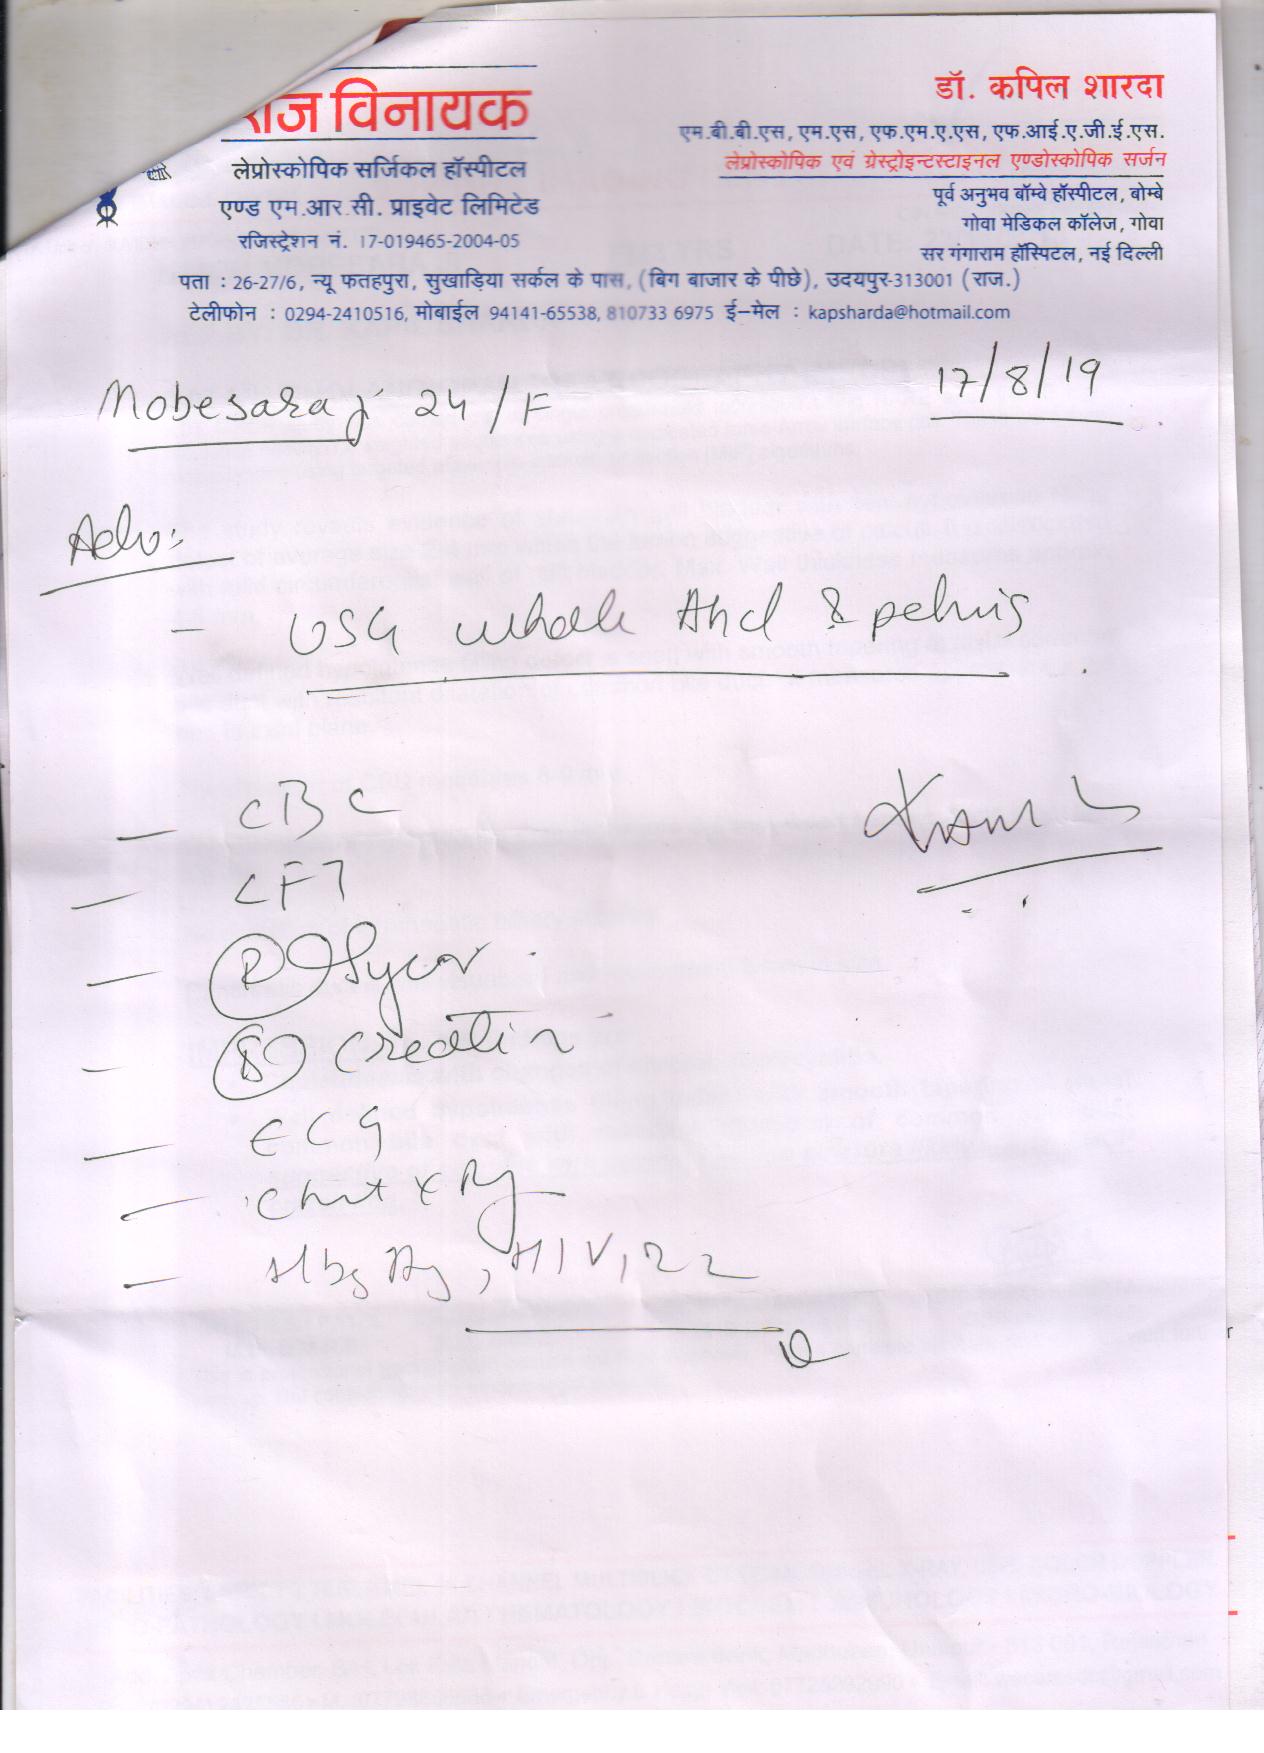 राज विनायक
लेप्रोस्कोपिक सर्जिकल हॉस्पीटल
एण्ड एम.आर.सी. प्राइवेट लिमिटेड
रजिस्ट्रेशन नं. 17-019465-2004-05
डॉ. कपिल शारदा
एम.बी.बी.एस, एम.एस, एफ.एम.ए.एस, एफ.आई.ए.जी.ई.एस.
लेप्रोस्कोपिक एवं ग्रेस्ट्रोइन्टस्टाइनल एण्डोस्कोपिक सर्जन
पूर्व अनुभव बॉम्बे हॉस्पीटल, बोम्बे
गोवा मेडिकल कॉलेज, गोवा
सर गंगाराम हॉस्पिटल, नई दिल्ली
पता : 26-27/6, न्यू फतहपुरा, सुखाड़िया सर्कल के पास, (बिग बाजार के पीछे), उदयपुर-313001 (राज.)
टेलीफोन : 0294-2410516, मोबाईल 94141-65538, 810733 6975 ई-मेल : kapsharda@hotmail.com
24/F
17/8/19
Adv:
- USG whole Abd & pelvis
- CBC
- LFT
- (R) Sugar
- (S) Creatin
- ECG
- Chest x Ray
- HbsAg, HIV,